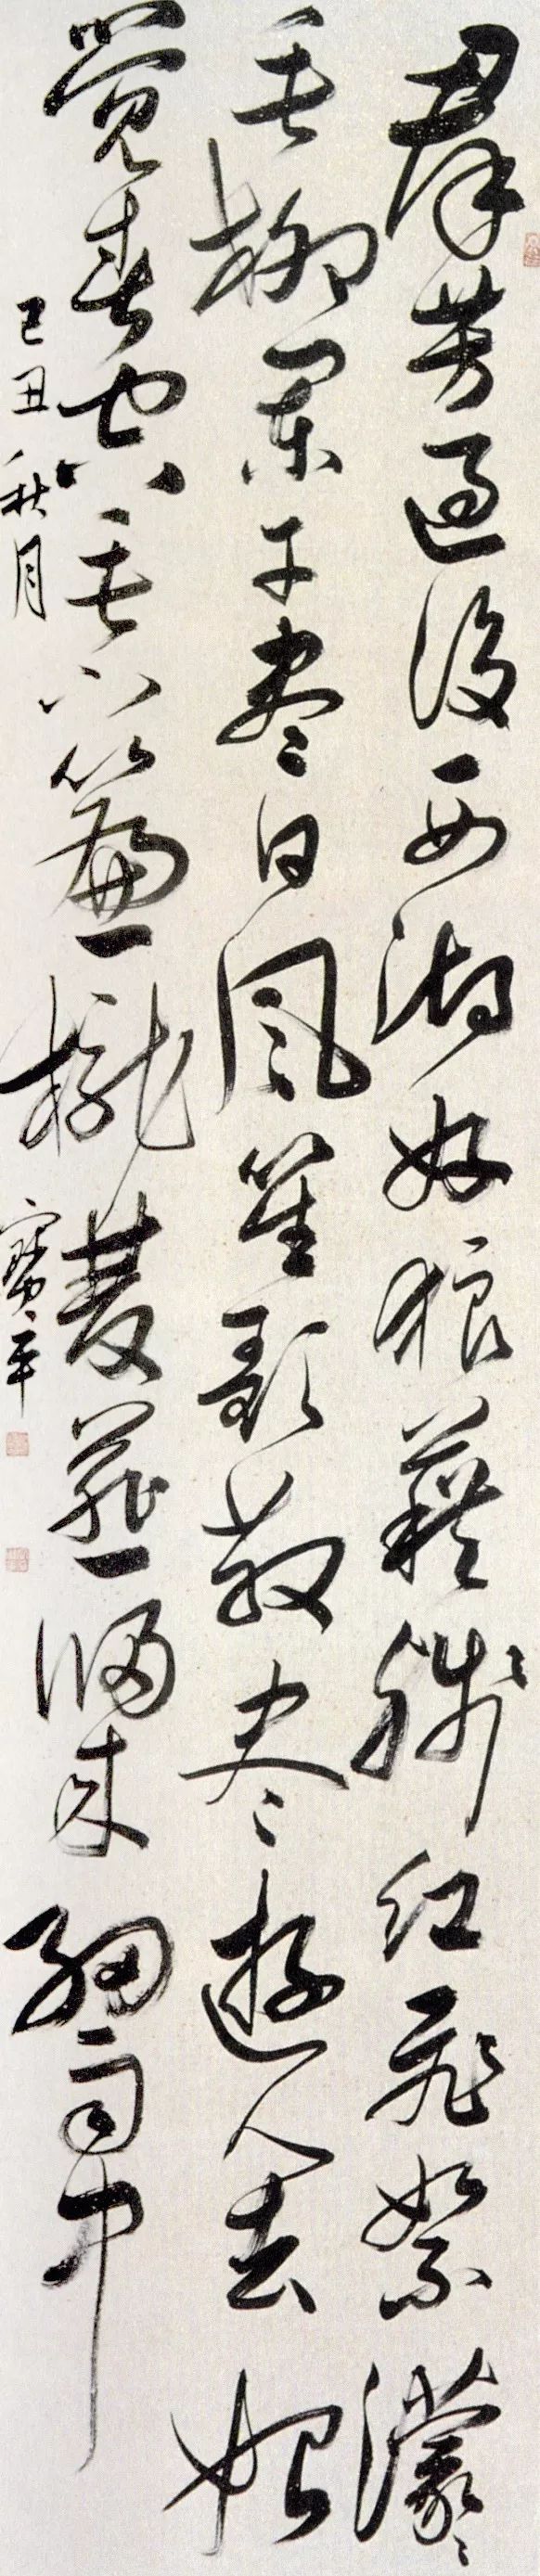 羣芳過後西湖好狼藉殘紅飛絮濛〻
垂柳闌干尽日風笙歌散尽遊人去始
覺春空垂下簾櫳雙燕歸來細雨中
己丑秋月